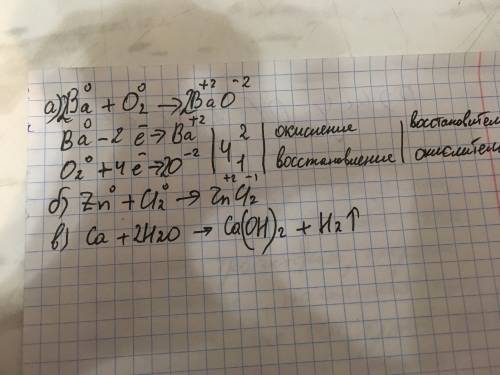 а) 2Ba⁰ + O₂⁰ → 2Ba⁺²O⁻²
Ba⁰ - 2ē → Ba⁺² | 4 | 2 | окисление | восстановитель
O₂⁰ + 4ē → 2O⁻² | 1 | восстановление | окислитель
б) Zn⁰ + Cl₂⁰ → Zn⁺²Cl₂⁻¹
в) Ca + 2H₂O → Ca(OH)₂ + H₂↑